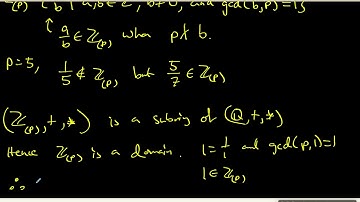 ℤ₍ₚ₎ { a/b | a,b∈ℤ, b≠0, and gcd(b,p)=1}
a/b ∈ ℤ₍ₚ₎ when p∤b.
p=5, 1/5 ∉ ℤ₍ₚ₎ but 5/7 ∈ ℤ₍ₚ₎
(ℤ₍ₚ₎,+,*) is a subring of (ℚ,+,*)
Hence ℤ₍ₚ₎ is a domain. 1=1/1 and gcd(p,1)=1
1∈ℤ₍ₚ₎
∴